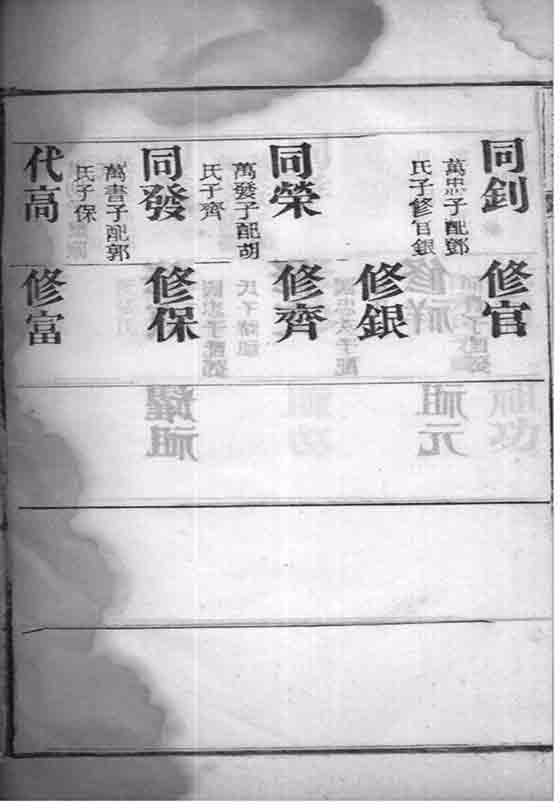 同釗
萬忠子配鄧
氏子修官銀
同榮
萬發子配胡
氏子齊
同發
萬書子配郭
氏子保
代高
修官
修銀
修齊
修保
修富